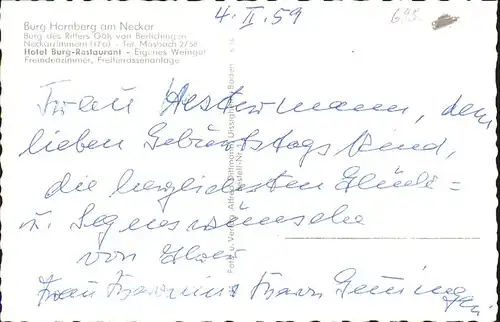 Burg Hornberg am Neckar
Burg des Ritters Götz von Berlichingen
Neckarzimmern (17a) - Tel. Mosbach 2758
Hotel Burg-Restaurant - Eigenes Weingut
Fremdenzimmer, Freiterrassenanlage
4. II. 59
695
Frau Hestermann, dem
lieben Geburtstagskind,
die herzlichsten Glück=
u. Segenswünsche
von Ihrer
Frau
Foto u. Verlag Alfred Dittmann, Baden